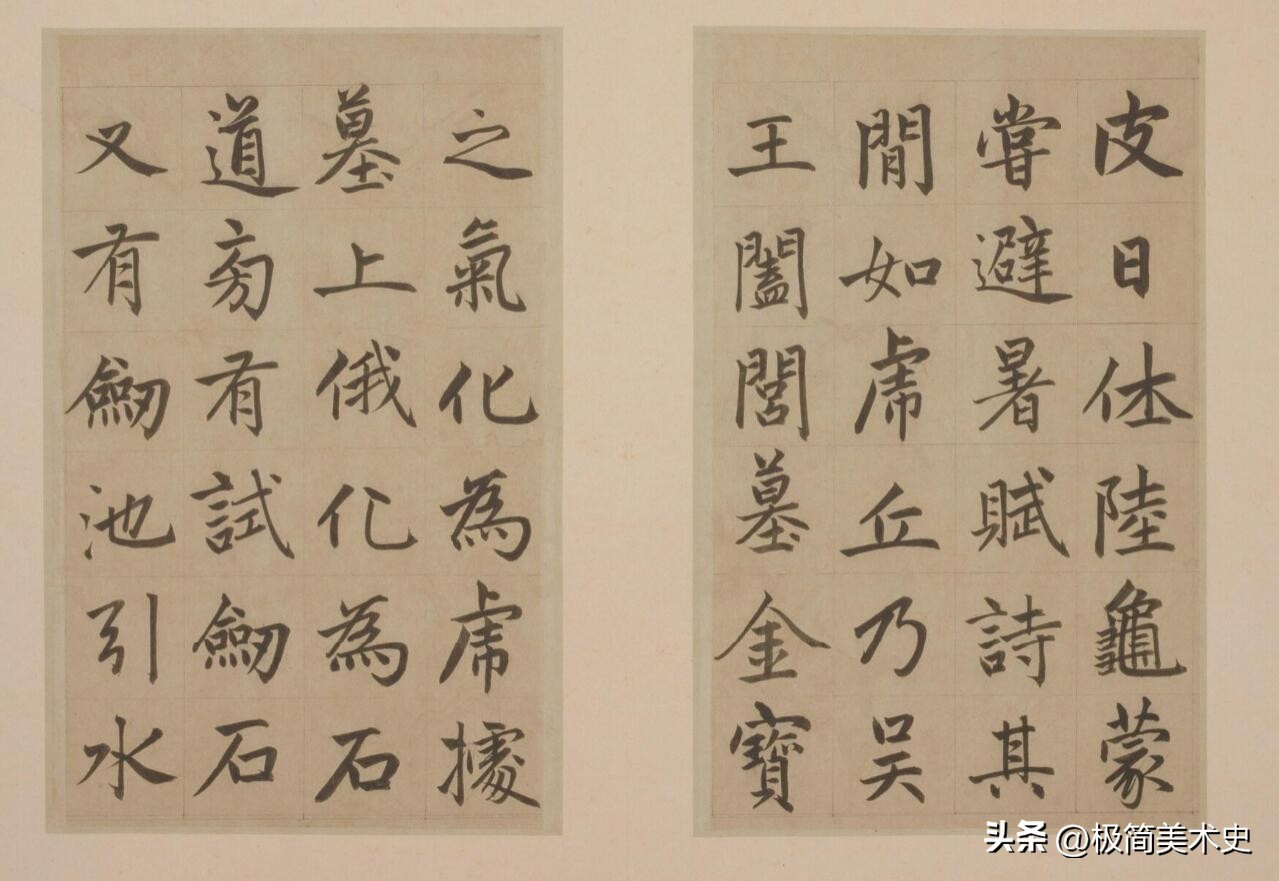 皮日休陸龜蒙
嘗避暑賦詩其
間如虎丘乃吳
王闔閭墓金寶
之氣化為虎據
墓上俄化為石
道旁有試劒石
又有劒池引水
头条 @极简美术史